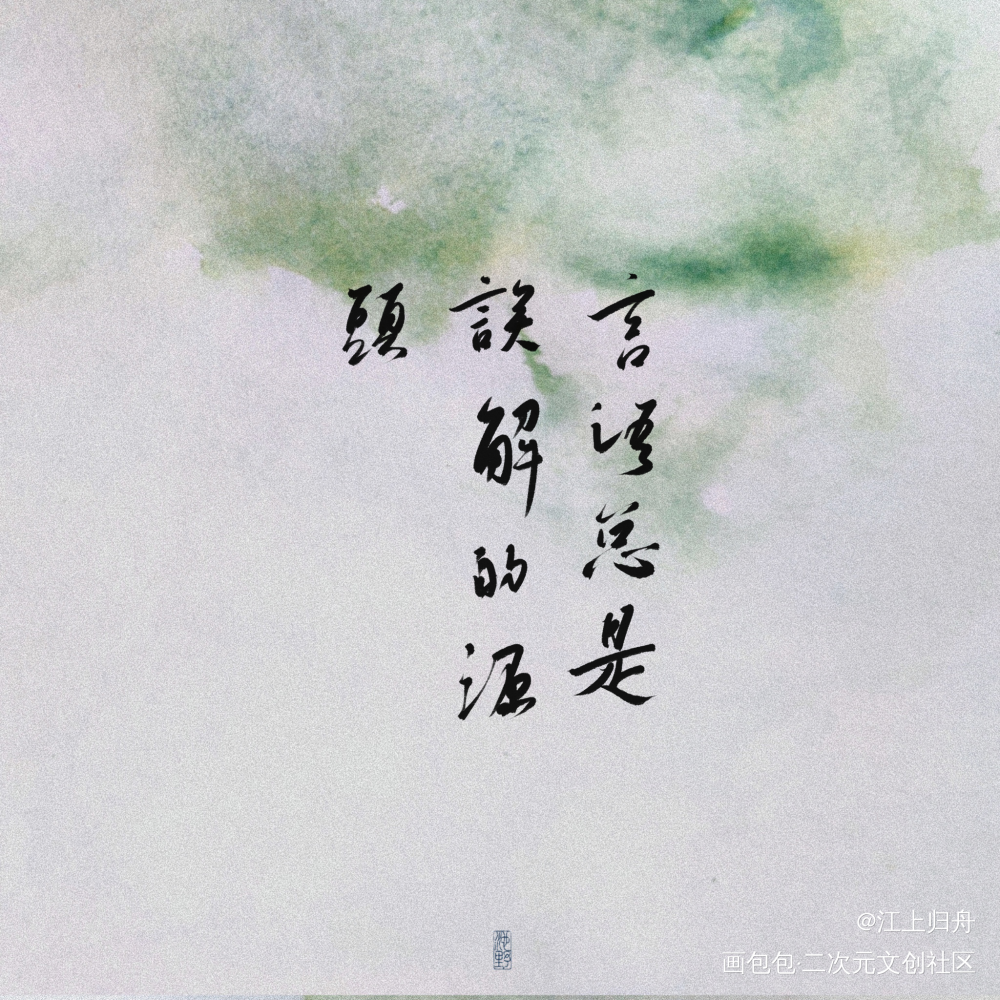 言语总是
誤解的源
頭
海野
@江上归舟
画包包·二次元文创社区